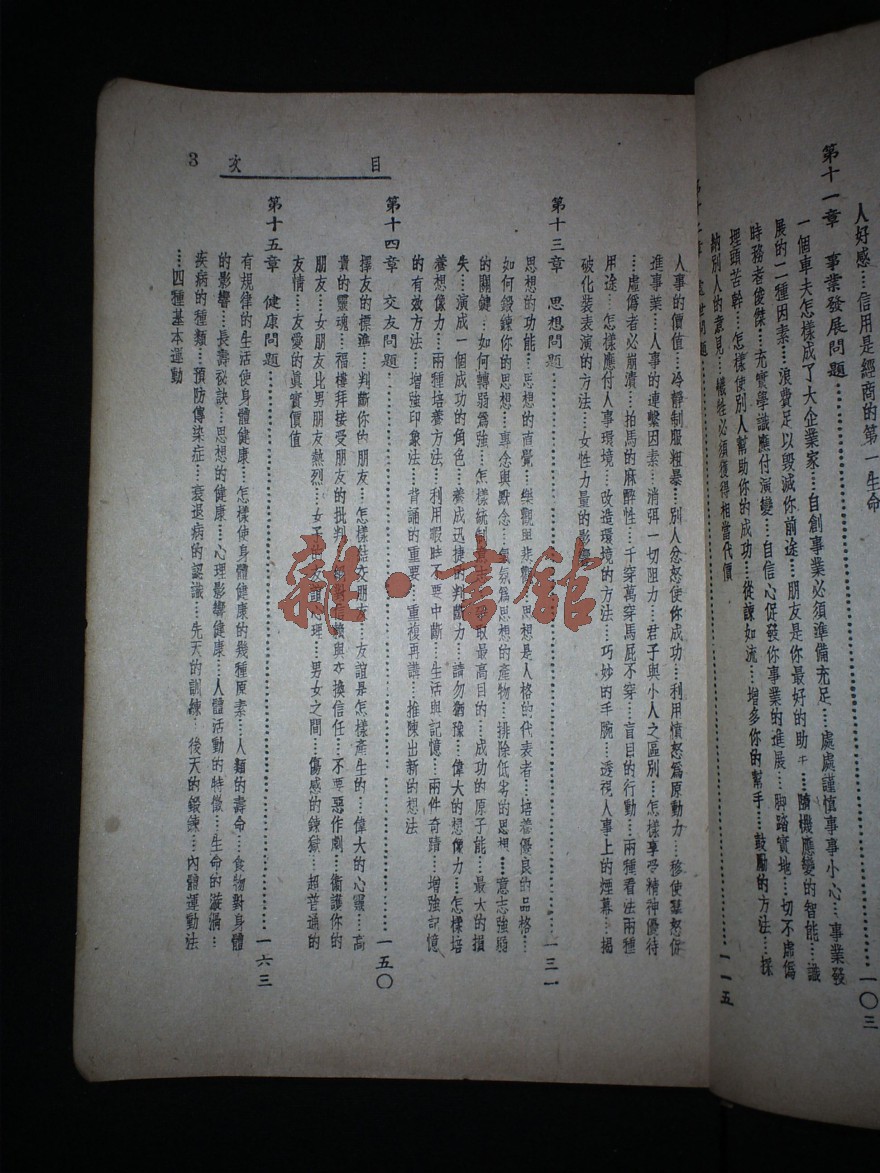 人好感…信用是經商的第一生命
第十一章 事業發展問題……一〇三
一個車夫怎樣成了大企業家…自創事業必須準備充足…處處謹慎事事小心…事業發
展的二種因素…浪費足以毀滅你前途…朋友是你最好的助手…隨機應變的智能…識
時務者俊傑…充實學識應付演變…自信心促發你事業的進展…脚踏實地…切不虛僞
埋頭苦幹…怎樣使別人幫助你的成功…從諫如流…增多你的幫手…鼓勵的方法…採
納別人的意見…犧牲必須獲得相當代價
處世問題……一一五
目次 3
人事的價值…冷靜制服粗暴…別人忿怒使你成功…利用憤怒爲原動力…移使羣怒促
進事業…人事的連繫因素…消弭一切阻力…君子與小人之區別…怎樣享受精神優待
…虛僞者必崩潰…拍馬的麻醉性…千穿萬穿馬屁不穿…盲目的行動…兩種看法兩種
用途…怎樣應付人事環境…改造環境的方法…巧妙的手腕…透視人事上的煙幕…揭
破化裝表演的方法…女性力量的影響
第十三章 思想問題……一三一
思想的功能…思想的直覺…樂觀與悲觀…思想是人格的代表者…培養優良的品格…
如何鍛鍊你的思想…專念與厭念…氣氛爲思想的產物…排除低劣的思想…意志強弱
的關鍵…如何轉弱爲強…怎樣統制意志…爭取最高目的…成功的原子能…最大的損
失…演成一個成功的角色…養成迅捷的判斷力…請勿猶豫…偉大的想像力…怎樣培
養想像力…兩種培養方法…利用暇時不要中斷…生活與記憶…兩件奇蹟…增強記憶
的有效方法…增強印象法…背誦的重要…重複再讀…推陳出新的想法
第十四章 交友問題……一五〇
擇友的標準…判斷你的朋友…怎樣結交朋友…友誼是怎樣產生的…偉大的心靈…高
貴的靈魂…福樓拜接受朋友的批判…絕對信賴與交換信任…不要惡作劇…衛護你的
朋友…女朋友比男朋友熱烈…女子的友誼心理…男女之間…傷感的鍊獄…超普通的
友情…友愛的眞實價值
第十五章 健康問題……一六三
有規律的生活使身體健康…怎樣使身體健康的幾種原素…人類的壽命…食物對身體
的影響…長壽祕訣…思想的健康…心理影響健康…人體活動的特徵…生命的漩渦…
疾病的種類…預防傳染症…衰退病的認識…先天的訓練…後天的鍛鍊…內體運動法
…四種基本運動
雜·書館